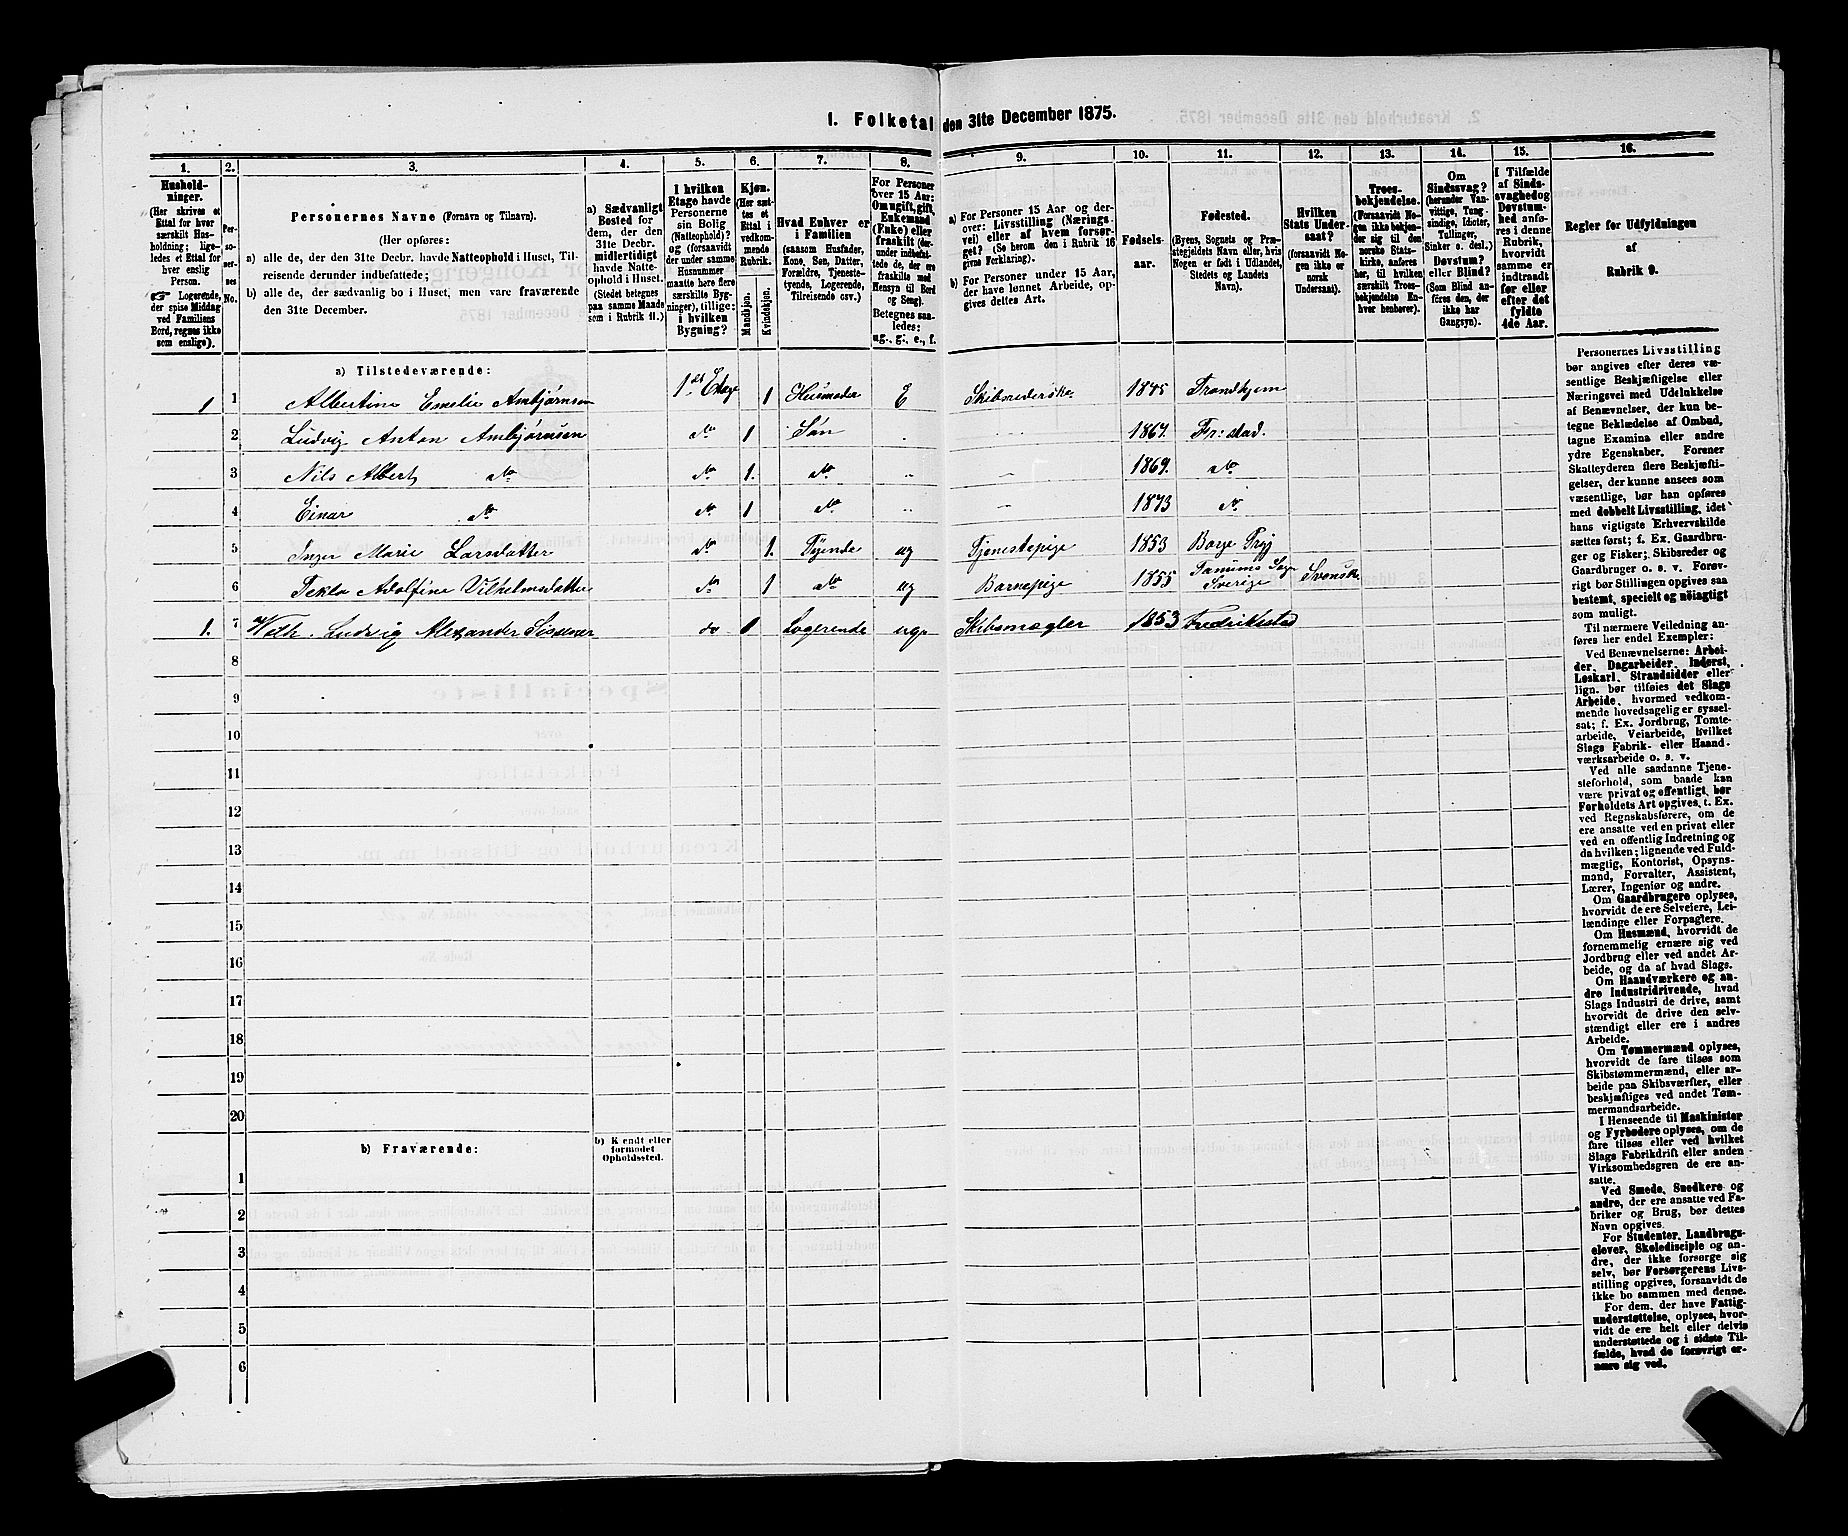 1. Folketal den 31te December 1875.
1. 2. 3. 4. 5. 6. 7. 8. 9. 10. 11. 12. 13. 14. 15. 16.
Hushold-
ninger.
(Her skrives et
Ettal for hver
særskilt Hus-
holdning; lige-
ledes et Ettal for
hver enslig
Person.
☞ Logerende,
der spise Middag
ved Familiens
Bord, regnes ikke
som enslige).
Per-
so-
ner-
nes
No.
Personernes Navne (Fornavn og Tilnavn).
(Her opføres:
a) alle de, der den 31te Decbr. havde Natteophold i Huset, Til-
reisende derunder indbefattede;
b) alle de, der sædvanlig bo i Huset, men vare fraværende
den 31te December.
a) Sædvanligt
Bosted for
dem, der den
31te Decbr.
midlertidigt
havde Natte-
ophold i Huset.
(Stedet betegnes
paa samme Maade
som i Rubrik 11.)
I hvilken
Etage havde
Personerne
sin Bolig
(Natteophold)?
og (forsaavidt
der under samme
Husnummer
maatte høre flere
særskilte Byg-
ninger), tillige:
i hvilken
Bygning?
Kjøn.
(Her sæt-
tes et
Ettal i
vedkom-
mende
Rubrik.
Mandkjøn.
Kvindekjøn.
Hvad Enhver er
i Familien
(saasom Husfader,
Kone, Søn, Datter,
Forældre, Tjeneste-
tyende, Logerende,
Tilreisende osv.)
For Personer
over 15 Aar:
Om ugift, gift,
Enkemand
(Enke) eller
fraskilt (der-
under indbefat-
tede de, der ere
fraskilte med
Hensyn til Bord
og Seng).
Betegnes saa-
ledes:
ug., g., e., f.
a) For Personer 15 Aar og der-
over: Livsstilling (Nærings-
vei) eller af hvem forsør-
get? (Se herom den i Rubrik 16
givne Forklaring).
b) For Personer under 15 Aar,
der have lønnet Arbeide, op-
gives dettes Art.
Fødsels-
aar.
Fødested.
(Byens, Sognets og Præ-
stegjeldets Navn eller, hvis
Nogen er født i Udlandet,
Stedets og Landets
Navn).
Hvilken
Stats Under-
saat?
(Forsaavidt No-
gen ikke er
norsk
Undersaat).
Troes-
bekjendelse.
(Forsaavidt No-
gen ikke bekjen-
der sig til den
norske Stats-
kirke, anføres
her, til hvilken
særskilt Troes-
bekjendelse En-
hver henhører).
Om
Sindssvag?
(herunder Van-
vittige, Tung-
sindige, Idioter,
Tullinger,
Sinker o. desl.)
Døvstum?
eller Blind?
(Som Blind an-
føres den, der
ikke har
Gangsyn).
I Tilfælde
af Sinds-
svaghed og
Døvstum-
hed anfø-
res i denne
Rubrik,
hvorvidt
samme er
indtraadt
før eller
efter det
fyldte
4de Aar.
Regler for Udfyldningen
af
Rubrik 9.
a) Tilstedeværende:
1 1 Albertine Emelie Ambjørnsen 1st Etage 1 Husmoder E 1845 Trondhjem
2 Ludvig Anton Ambjørnsen do 1 Søn 1867. Fr:stad.
3 Nils Albert do do 1. do 1869. do
4 Einar do do 1 do 1873 do
5 Inger Marie Larsdatter do 1. Tyende ug Tjenestepige 1853 Borge
6 Tekla Adolfine Vilhelmsdatter do 1 do ug Barnepige 1855 Tanums Sogn Sverige Svensk.
1. 7 Ludvig Alexander do 1 Logerende ug. Skibsmægler 1853 Fredriksstad
8
9
10
11
12
13
14
15
16
17
18
19
20
b) Fraværende:
b) Kjendt eller
formodet
Opholdssted.
1
2
3
4
5
6
Personernes Livsstilling
bør angives efter deres væ-
sentlige Beskjæftigelse eller
Næringsvei med Udelukkelse
af Benævnelser, der kun be-
tegne Beklædelse af Ombud,
tagne Examina eller andre
ydre Egenskaber. Forener
Skatteyderen flere Beskjæfti-
gelser, der kunne ansees som
væsentlige, bør han opføres
med dobbelt Livsstilling, idet
hans vigtigste Erhvervskilde
sættes først; f. Ex. Gaardbru-
ger og Fisker; Skibsreder og
Gaardbruger o. s. v. Forøv-
rigt bør Stillingen opgives saa
bestemt, specielt og nøiagtigt
som muligt.
Til nærmere Veiledning an-
føres her endel Exempler:
Ved Benævnelserne: Arbei-
der, Dagarbeider, Inderst,
Løskarl, Strandsidder eller
lign. bør tilføies det Slags
Arbeide, hvormed vedkom-
mende hovedsagelig er syssel-
sat; f. Ex. Jordbrug, Tomte-
arbeide, Veiarbeide, hvilket
Slags Fabrik- eller Haand-
værksarbeide o. s. v.
Ved alle saadanne Tjene-
steforhold, som baade kan
være privat og offentligt, bør
Forholdets Art opgives, t. Ex.
ved Regnskabsførere, om de
ere ansatte ved en privat eller
ved en offentlig Indretning og
da hvilken; lignende ved Fuld-
mægtig, Kontorist, Opsyns-
mand, Forvalter, Assistent,
Lærer, Ingeniør og andre.
Om Gaardbrugere oplyses,
hvorvidt de ere Selveiere, Lei-
lændinge eller Forpagtere.
Om Husmænd, hvorvidt de
fornemmelig ernære sig ved
Jordbrug eller ved andet Ar-
beide, og da af hvad Slags.
Om Haandværkere og an-
dre Industridrivende, hvad
Slags Industri de drive, samt
hvorvidt de drive den selv-
stændigt eller ere i andres
Arbeide.
Om Tømmermænd oplyses,
hvorvidt de fare tilsøs som
Skibstømmermænd, eller ar-
beide paa Skibsværfter, eller
beskjæftiges ved andet Tøm-
mermandsarbeide.
I Henseende til Maskinister
og Fyrbødere oplyses, om de
fare tilsøs eller ved hvilket
Slags Fabrikdrift eller anden
Virksomhedsgren de ere an-
satte.
Ved Smede, Snedkere og
andre, der ere ansatte ved Fa-
briker og Brug, bør dettes
Navn opgives.
For Studenter, Landbrugs-
elever, Skoledisciple og an-
dre, der ikke forsørge sig
selv, bør Forsørgerens Livs-
stilling opgives, forsaavidt de
ikke bo sammen med denne.
For dem, der have Fattig-
understøttelse, oplyses, hvor-
vidt de ere helt eller delvis
understøttede og i sidste Til-
fælde, hvad de forøvrigt er-
nære sig ved.